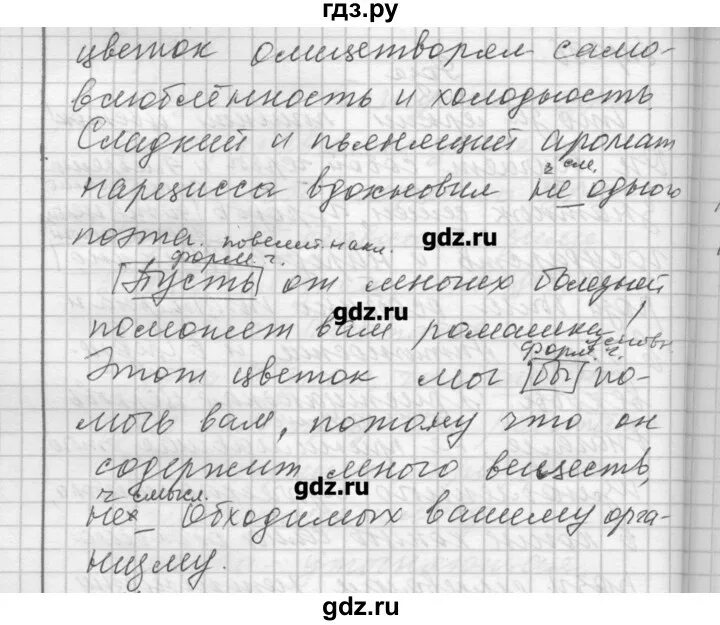 гдз.ру
цветок олицетворял само-
влюблённость и холодность.
Сладкий и пьянящий аромат
ч. см.
нарцисса вдохновил не одного
поэта. повелит. накл.
gdz.ru
форм. ч.
Пусть от многих болезней
gdz.ru
поможет вам ромашка!
условн.
форм. ч.
Этот цветок мог бы по-
мочь вам, потому что он
содержит много веществ,
gdz.ru
ч. смысл.
не обходимых вашему орга-
низму.
gdz.ru